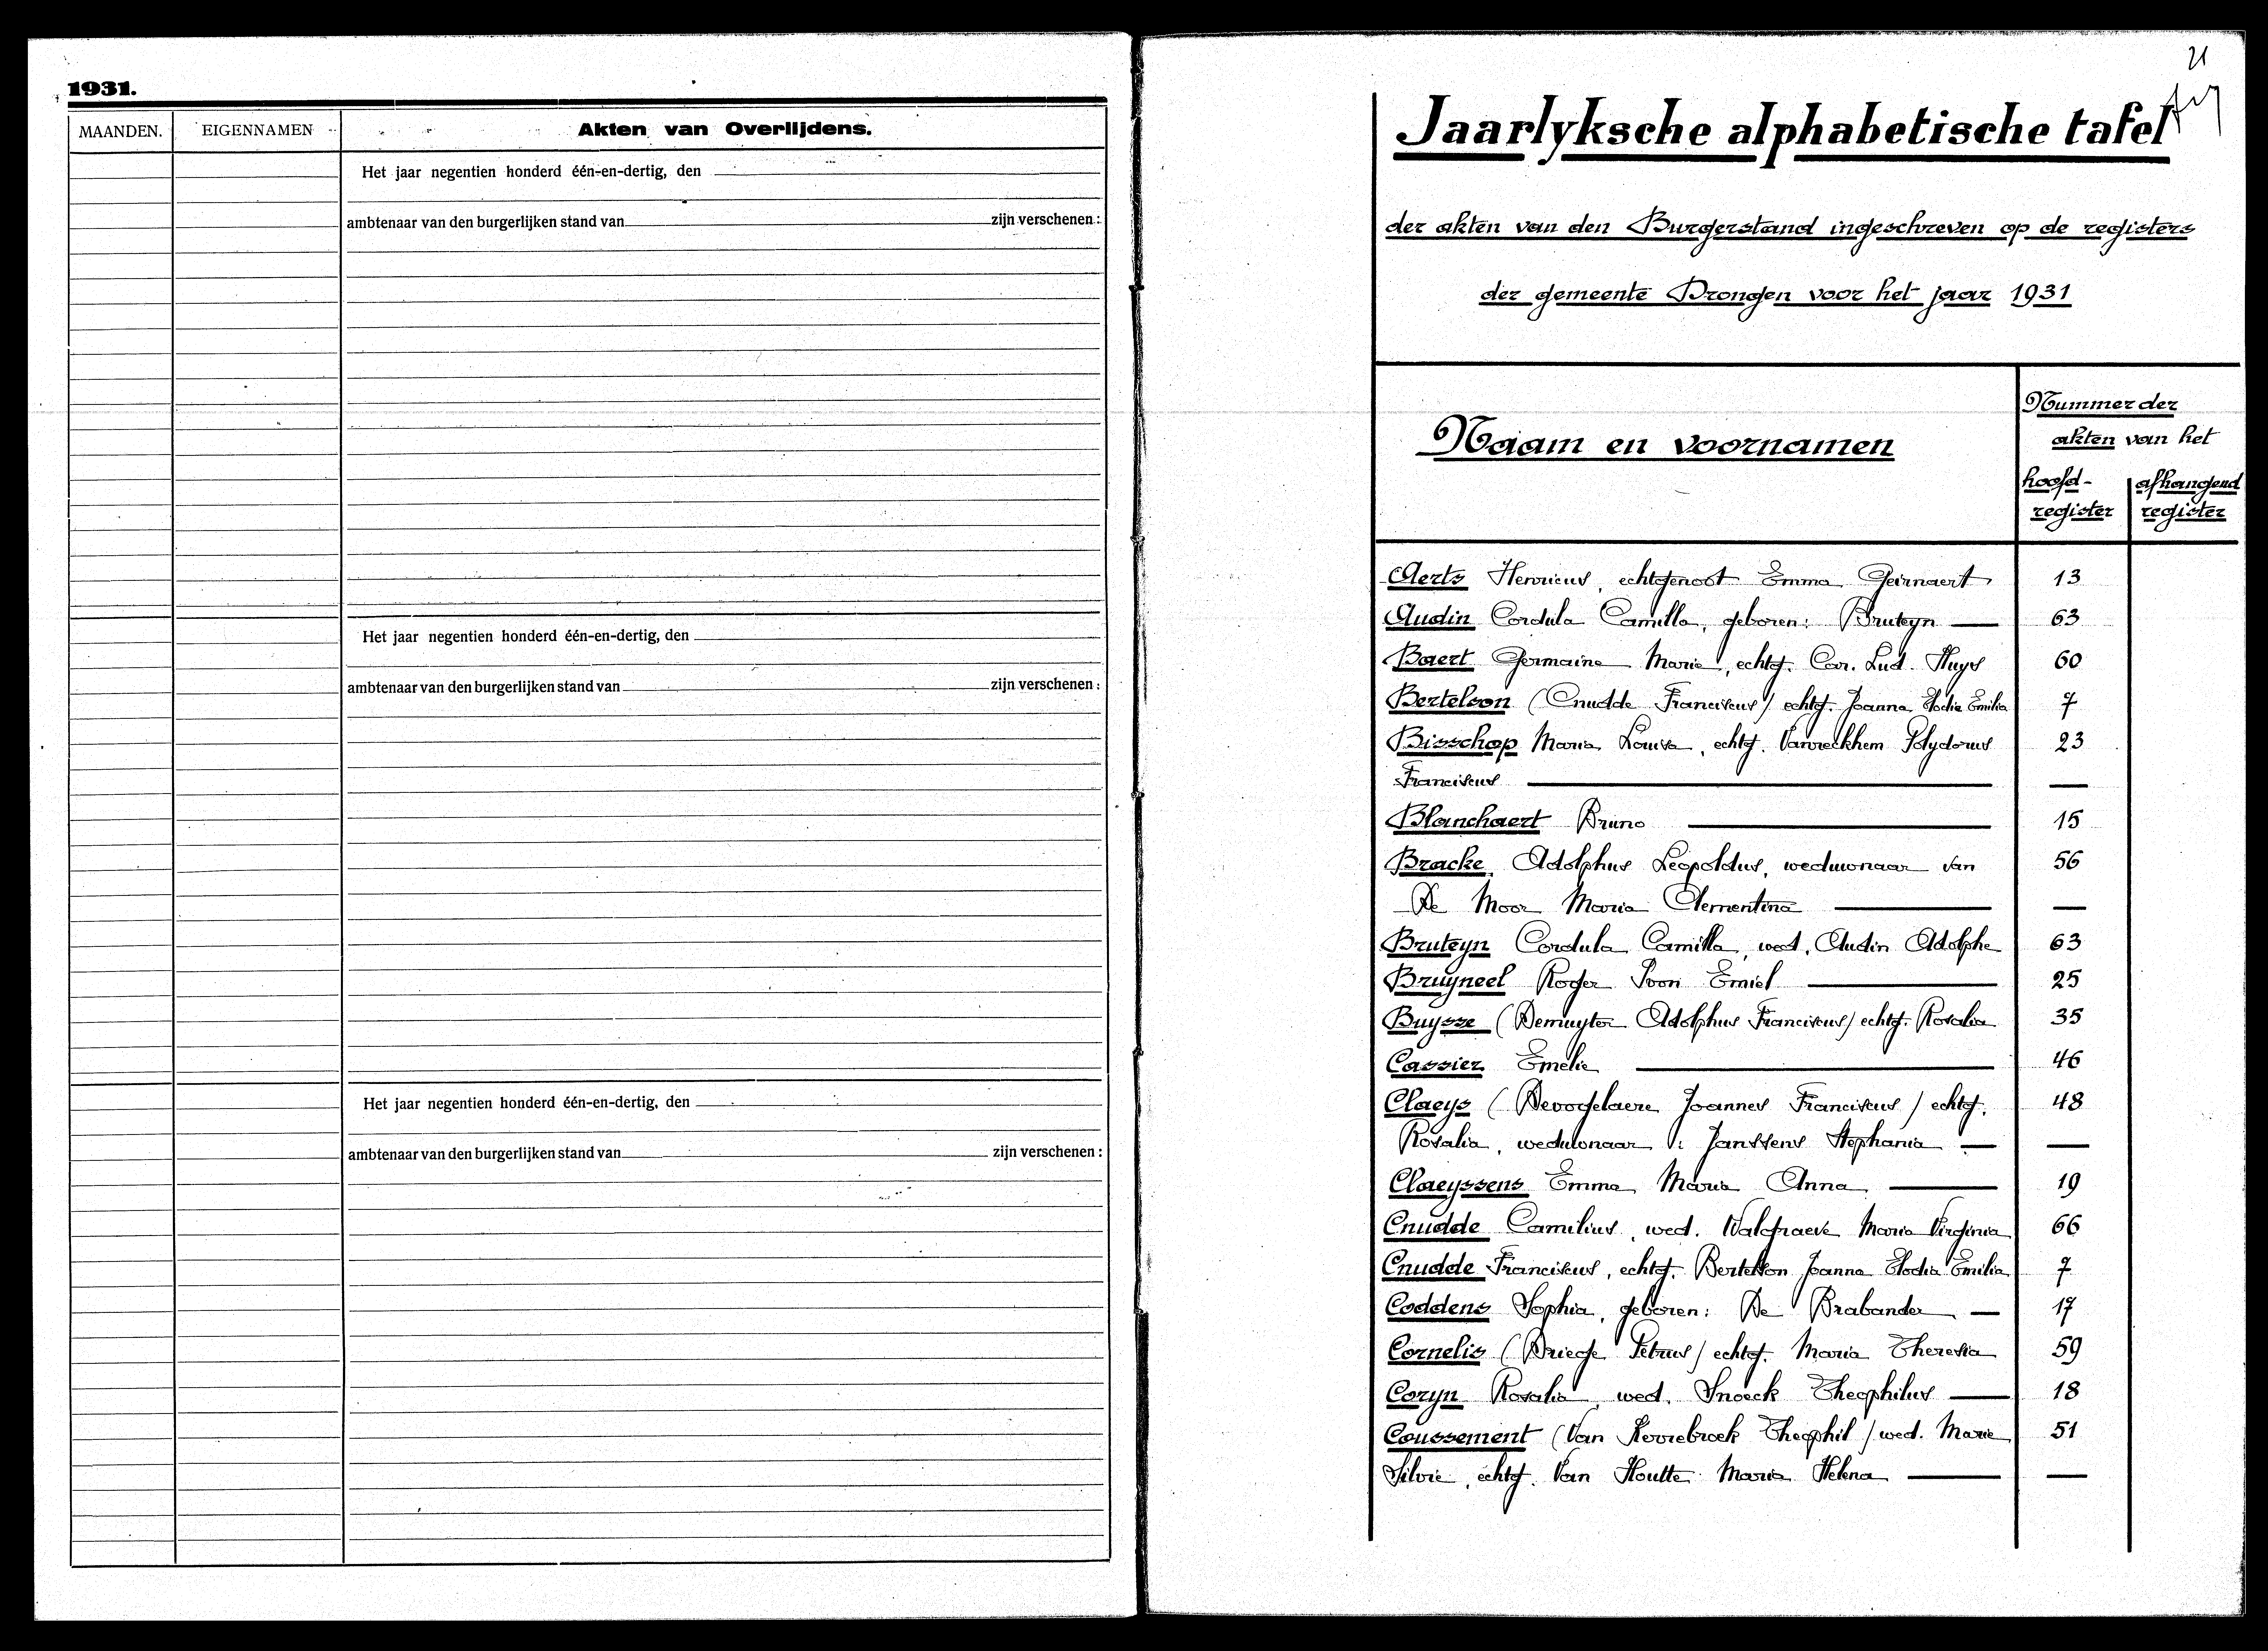 1931.
MAANDEN. EIGENNAMEN Akten van Overlijdens.
Het jaar negentien honderd één-en-dertig, den
ambtenaar van den burgerlijken stand van zijn verschenen :
Het jaar negentien honderd één-en-dertig, den
ambtenaar van den burgerlijken stand van zijn verschenen :
Het jaar negentien honderd één-en-dertig, den
ambtenaar van den burgerlijken stand van zijn verschenen :
21
Jaarlyksche alphabetische tafel
der akten van den Burgerstand ingeschreven op de registers
der gemeente Drongen voor het jaar 1931
Naam en voornamen
Nummer der
akten van het
hoofd- afhangend
register register
Aerts Henricus, echtgenoot Emma Geirnaert 13
Audin Cordula Camilla, geboren: Bruteyn — 63
Baert Germaine Marie, echtg. Car. Lud. Huys 60
Bertelson (Cnudde Franciscus) echtg. Joanna Elodia Emilia 7
Bisschop Maria Louisa, echtg. Vanreckhem Polydorus 23
Franciscus — —
Blanchaert Bruno — 15
Bracke Adolphus Leopoldus, weduwnaar van 56
De Moor Maria Clementina — —
Bruteyn Cordula Camilla, wed. Audin Adolphe 63
Bruyneel Roger Ivon Emiel — 25
Buysse (Demuyter Adolphus Franciscus) echtg. Rosalia 35
Cassier Emelie — 46
Claeys (Devogelaere Joannes Franciscus) echtg. 48
Rosalia, weduwnaar v: Janssens Stephania — —
Claeyssens Emma Maria Anna — 19
Cnudde Camilius, wed. Walgraeve Maria Virginia 66
Cnudde Franciscus, echtg. Bertelson Joanna Elodia Emilia 7
Coddens Sophia, geboren: De Brabander — 17
Cornelis (Driege Petrus) echtg. Maria Theresia 59
Coryn Rosalia, wed. Snoeck Theophilus — 18
Coussement (Van Kerrebroek Theophil) wed. Marie 51
Silvie, echtg. Van Houtte Maria Helena — —